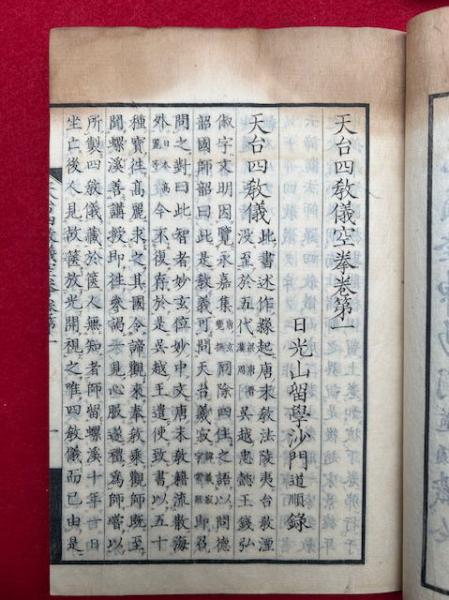 天台四教儀空拳卷第一
日光山留學沙門道順錄
天台四教儀此書述作緣起唐末教法陵夷台教漂
沒至於五代吳越忠懿王錢弘
俶字文明因覽永嘉集唐玄覺撰同除四住之語以問德
韶國師韶曰此是教義可問天台義寂即召
問之對曰此智者妙玄位妙中文唐末教籍流散海
外今不復存於是吳越王遣使致書以五十
種寶往高麗求之其國令諦觀來奉教乘觀師既至
聞螺溪善講授即往參謁一見心服遂禮為師嘗以
所製四教儀藏於篋人無知者師留螺溪十年一日
坐亡後人見故篋放光開視之唯四教儀而已由是